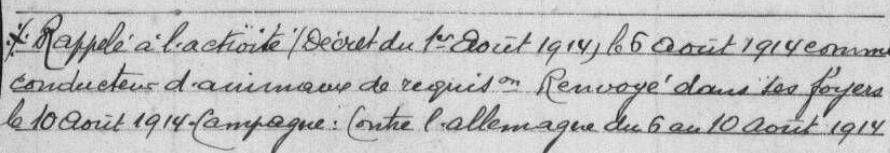 Rappelé à l'activité (Décret du 1er Août 1914) le 6 Août 1914 comme
conducteur d'animaux de requison Renvoyé dans ses foyers
le 10 Août 1914. Campagne : Contre l'allemagne du 6 au 10 Août 1914